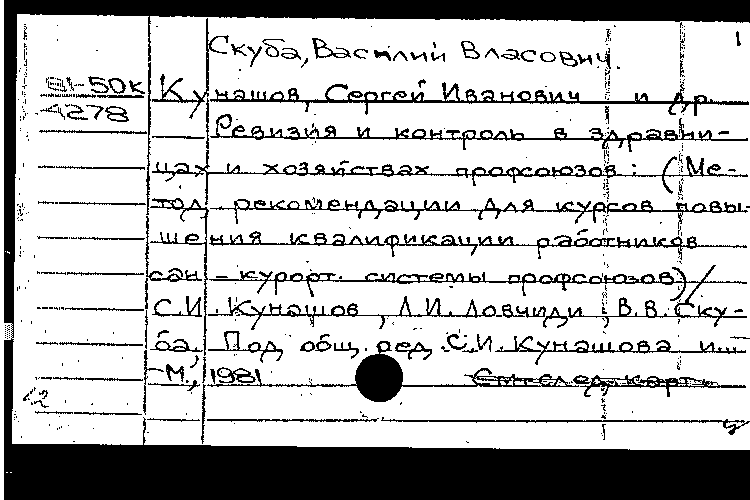 1
Скуба, Василий Власович.
81-50к
4278
Кунашов, Сергей Иванович и др.
Ревизия и контроль в здравни-
цах и хозяйствах профсоюзов: (Ме-
тод. рекомендации для курсов повы-
шения квалификации работников
сан-курорт. системы профсоюзов)/
С.И. Кунашов, Л.И. Ловчиди, В.В. Ску-
ба; Под общ. ред. С.И. Кунашова и...
-М., 1981
См. след. карт.
12